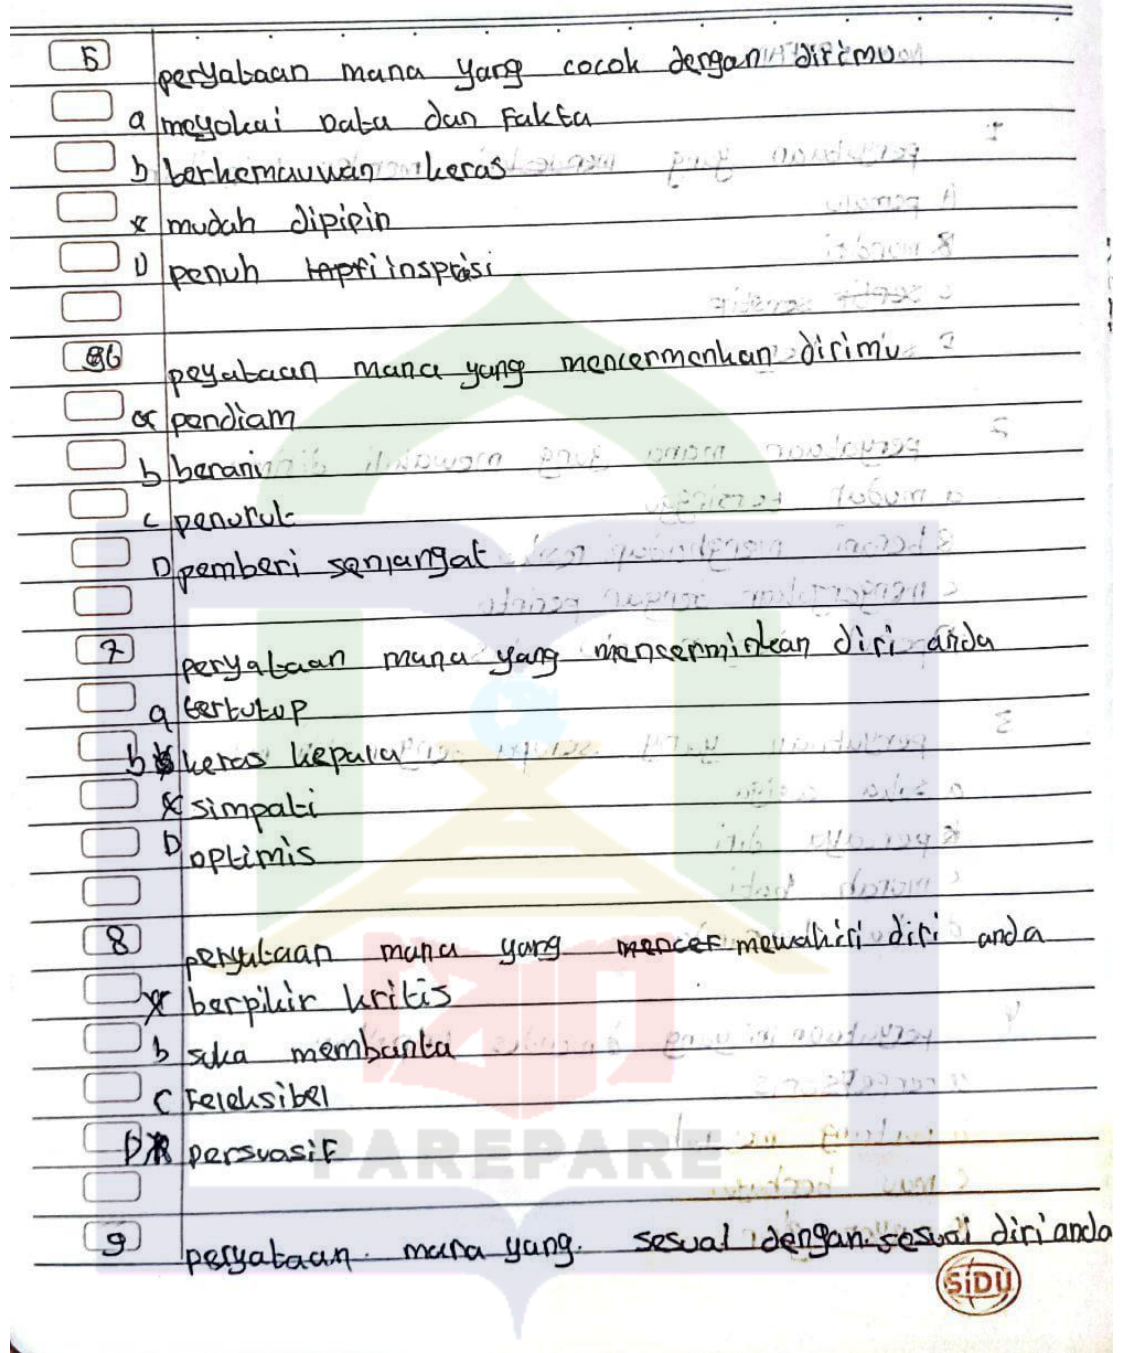 5 peryataan mana yang cocok dengan dirimu
a meyokai Data dan Fakta
b berkemauwan keras
x mudah dipipin
D penuh inspirasi
6 peyataan mana yang mencermenkan dirimu
a pendiam
b berani
c penurut
D pemberi semangat
7 peryataan mana yang mencerminkan diri anda
a tertutup
b keras kepala
x simpati
D optimis
8 peryataan mana yang mencer mewakiri diri anda
x berpikir kritis
b suka membanta
c Feleksibel
D persuasif
PAREPARE
9 peryataan mana yang sesuai dengan sesuai diri anda
SiDU